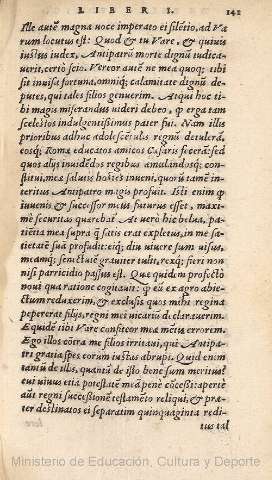 LIBER I. 141
Ille autē magna voce imperato ei silētio, ad Va
rum locutus est: Quod & tu Vare, & quiuis
iustus iudex, Antipatrū morte dignū iudica-
uerit, certò scio. Vereor autē ne mea quoq; tibi
sit inuisa fortuna, omniq; calamitate dignū de-
putes, qui tales filios genuerim. Atqui hoc ti-
bi magis miserandus uideri debeo, q̃ erga tam
scelestos indulgentissimus pater fui. Nam illis
prioribus adhuc adolescētulis regnū detuleră,
cosq; Romæ educatos amicos Cæsaris feceră: sed
quos alijs inuidēdos regibus amulandosq; con-
stitui, meæ salutis hostes inueni, quorū tamē in-
teritus Antipatro magis profuit. Isti enim q̃
iuuenis & successor meus futurus esset, maxi-
mè securitas quærebat̃. At verò hic belua, pa-
tiētia mea supra q̃ satis erat expletus, in me sa-
tietatē suā profudit: eiq; diu viuere sum uisus,
meamq; senectutē grauiter tulit, rexq; fieri non
nisi parricidio passus est. Quæ quidem profectò
noui qua ratione cogitauit: q̃ eū ex agro abie-
ctum reduxerim, & exclusis quos mihi regina
pepererat filijs, regni mei vicariū declarauerim.
Equidē tibi Vare confiteor meæ mētis errorem.
Ego illos cōtra me filios irritaui, qui Antipa-
tri gratia spes eorum iustas abrupi. Quid enim
tantū de illis, quantū de isto bene sum meritus?
cui viuus etiā potestatē meā penè cōcessi: aperiē
aūt regni successionē testamēto reliqui, & præ-
ter destinatos ei separatim quinquaginta redi-
tus tal
Ministerio de Educación, Cultura y Deporte